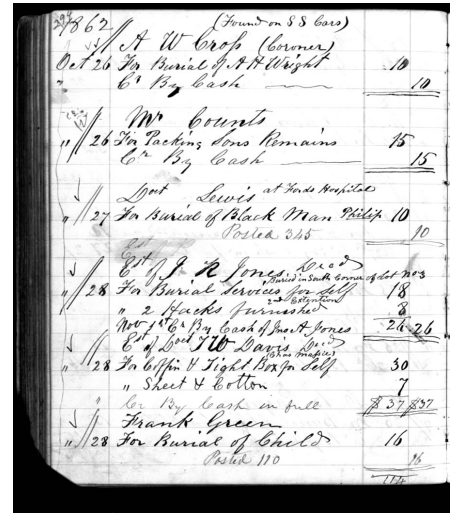 1862 (Found on S S Cars)
A W Cross (Coroner)
Oct 26 For Burial of A H Wright 10
" Cr By Cash 10
Mr Counts
" 26 For Packing Sons Remains 15
Cr By Cash 15
Doct Lewis at Fords Hospital
" 27 For Burial of Black Man Philip 10
Posted 345 10
Est
Est of J R Jones Decd
Buried in South Corner of Lot No 3
" 28 For Burial Services for Self 18
2nd Extention
" 2 Hacks furnished 8
Nov 1st Cr By Cash of Jno A Jones 26 26
Est of Doct T W Davis Decd
" 28 For Coffin & Tight Box for Self 30
" Sheet & Cotton 7
Cr By Cash in full $37 $37
Frank Green
" 28 For Burial of Child 16
Posted 110 16
114